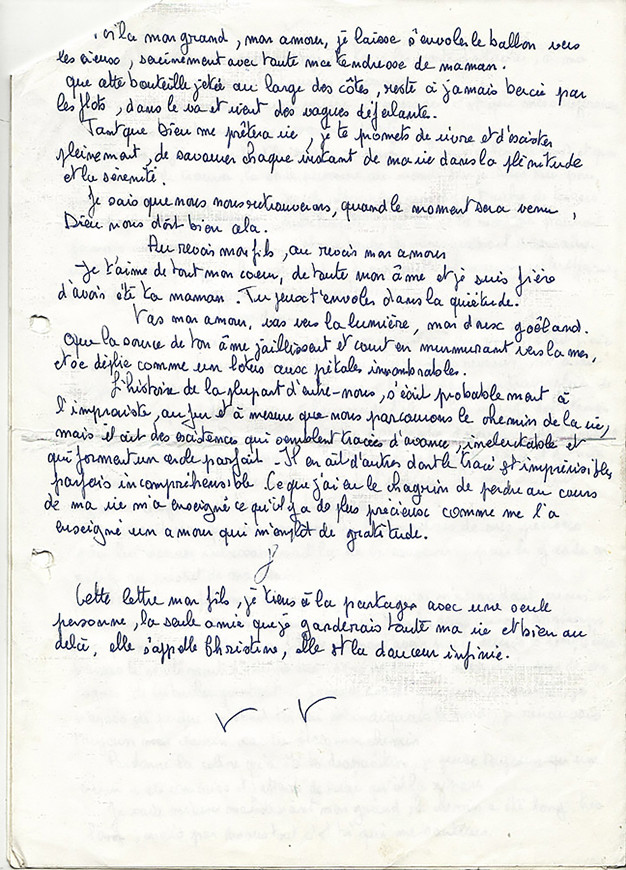 Voilà mon grand, mon amour, je laisse s'envoler le ballon vers
les cieux, sereinement avec toute ma tendresse de maman.
que cette bouteille jetée au large des côtes, reste à jamais bercée par
les flots, dans le va et vient des vagues déferlante.
Tant que Dieu me prêtera vie, je te promets de vivre et d'exister
pleinement, de savourer chaque instant de ma vie dans la plénitude
et la sérénité.
Je sais que nous nous retrouverons, quand le moment sera venu,
Dieu nous doit bien cela.
Au revoir mon fils, au revoir mon amour
Je t'aime de tout mon coeur, de toute mon âme et je suis fière
d'avoir été ta maman. Tu peux t'envoler dans la quiétude.
Vas mon amour, vas vers la lumière, mon doux goêland.
Que la source de ton âme jaillissent et court en murmurant vers la mer,
et se déplie comme un lotus aux pétales innombrables.
L'histoire de la plupart d'entre-nous, s'écrit probablement à
l'improviste, au fur et à mesure que nous parcourons le chemin de la vie,
mais il est des existences qui semblent tracées d'avance, inéluctable et
qui forment un cercle parfait - Il en ait d'autres dont le tracé est imprévisible,
parfois incompréhensible. Ce que j'ai eu le chagrin de perdre au cours
de ma vie m'a enseigné ce qu'il y a de plus précieux comme me l'a
enseigné un amour qui m'emplit de gratitude.
Cette lettre mon fils, je tiens à la partager avec une seule
personne, la seule amie que je garderais toute ma vie et bien au
delà, elle s'appelle Christine, elle est la douceur infinie.